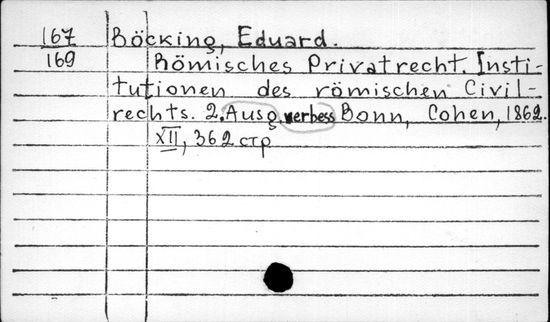 167 Böcking, Eduard.
169 Römisches Privatrecht. Insti-
tutionen des römischen Civil-
rechts. 2. Ausg. verbess Bonn, Cohen, 1862.
XII, 362 стр